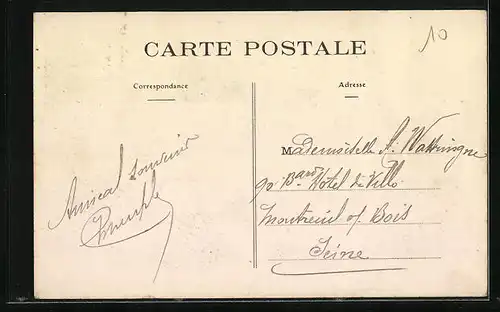 10
CARTE POSTALE
Correspondance
Adresse
Amical souvenir
Mademoiselle A. Wattringne
90 Bard Hotel de Ville
Montreuil s/ Bois
Seine